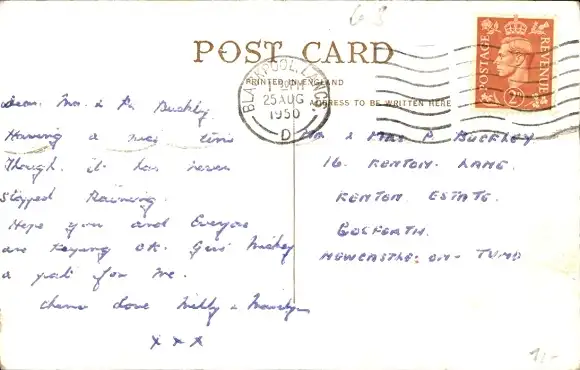 POST CARD
PRINTED IN ENGLAND
ADDRESS TO BE WRITTEN HERE
BLACKPOOL, LANCS.
25 AUG
1950
D
POSTAGE REVENUE
2D
Dear Mr. & Buckley.
Having a nice time
Though. it has never
Stopped Raining.
Hope you and Everyone
are Keeping OK. Give Mickey
a pat for me.
Love Milly & Marilyn
x x x
Mr & Mrs P. BUCKLEY
16. KENTON. LANE.
KENTON ESTATE.
GOSFORTH.
NEWCASTLE. ON - TYNE